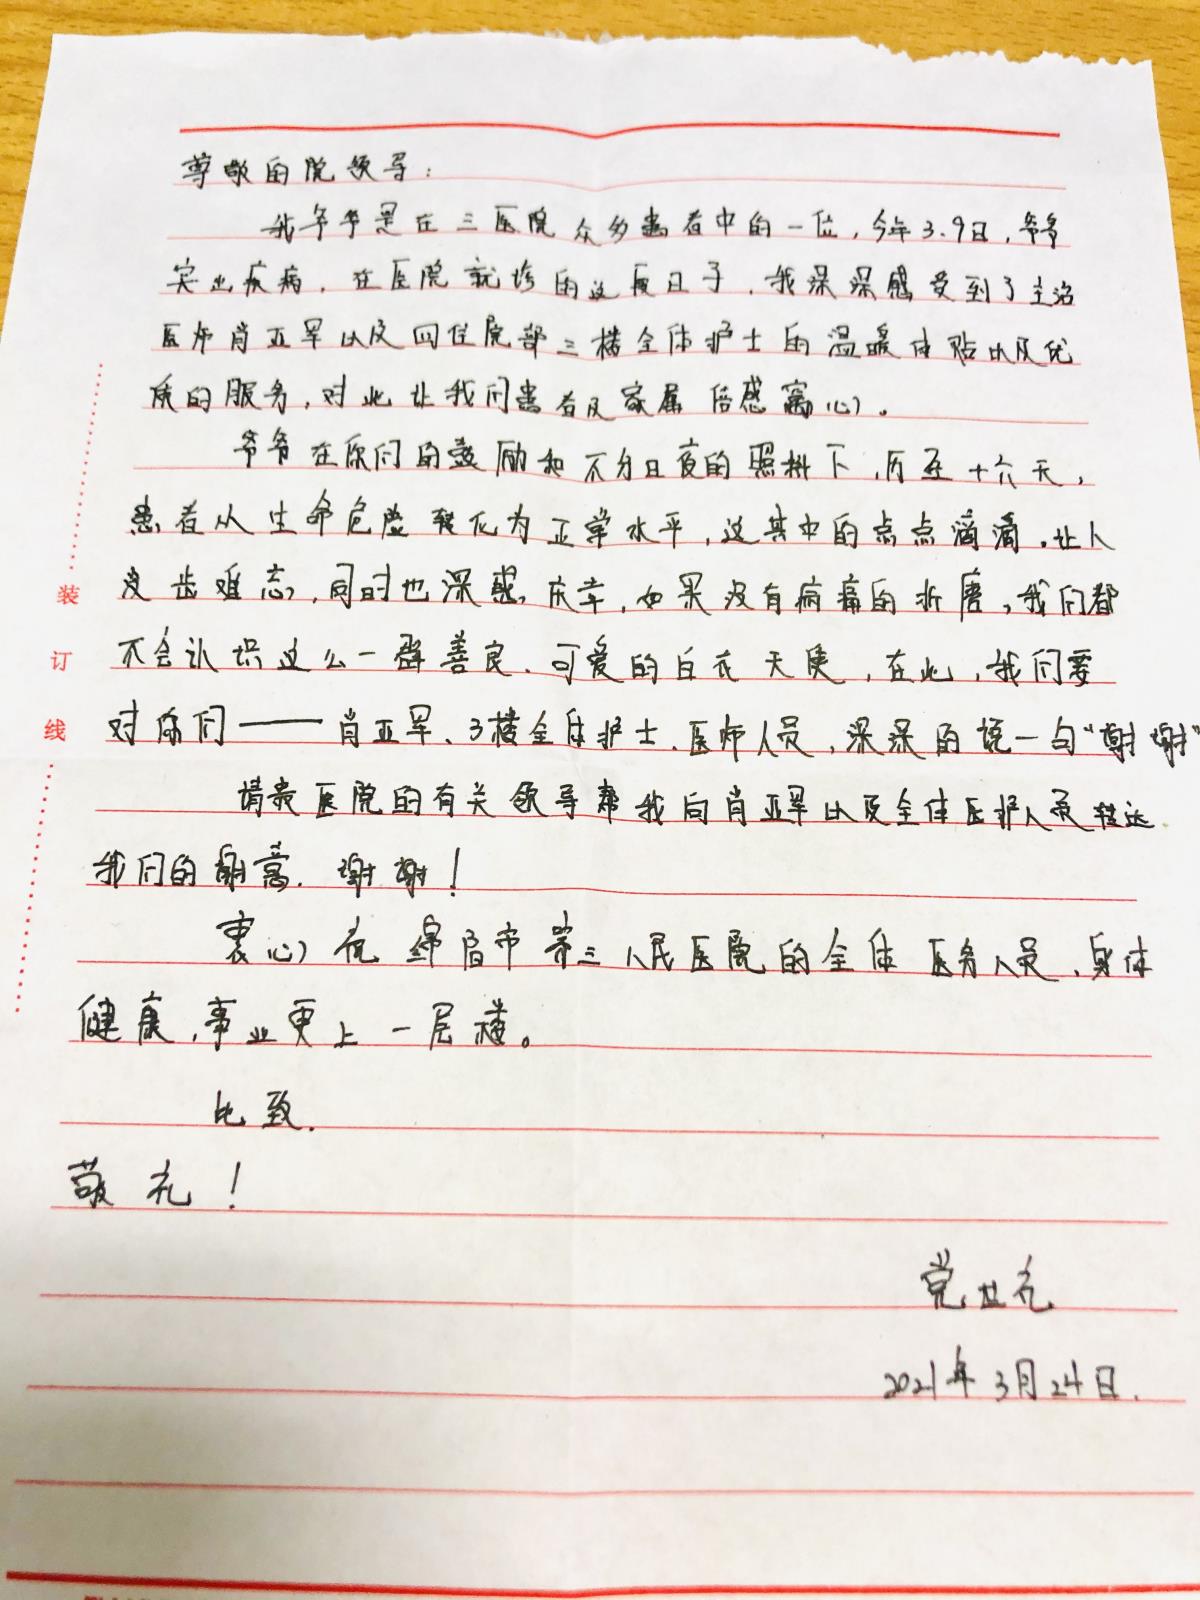 尊敬的院领导：
我爷爷是在三医院众多患者中的一位，今年3.9日，爷爷
突出疾病，在医院就诊的这段日子，我深深感受到了主治
医师肖亚军以及四住院部三楼全体护士的温暖体贴以及优
质的服务，对此让我们患者及家属倍感窝心。
爷爷在你们的鼓励和不分日夜的照料下，历至十六天，
患者从生命危险转化为正常水平，这其中的点点滴滴，让人
没齿难忘，同时也深感庆幸，如果没有病痛的折磨，我们都
不会认识这么一群善良、可爱的白衣天使，在此，我们要
对你们——肖亚军、3楼全体护士、医师人员，深深的说一句“谢谢”
请贵医院的有关领导帮我向肖亚军以及全体医护人员转达
我们的谢意．谢谢！
衷心祝绵阳市第三人民医院的全体医务人员，身体
健康，事业更上一层楼。
此致．
敬礼！
党世礼
2021年3月24日．
装
订
线